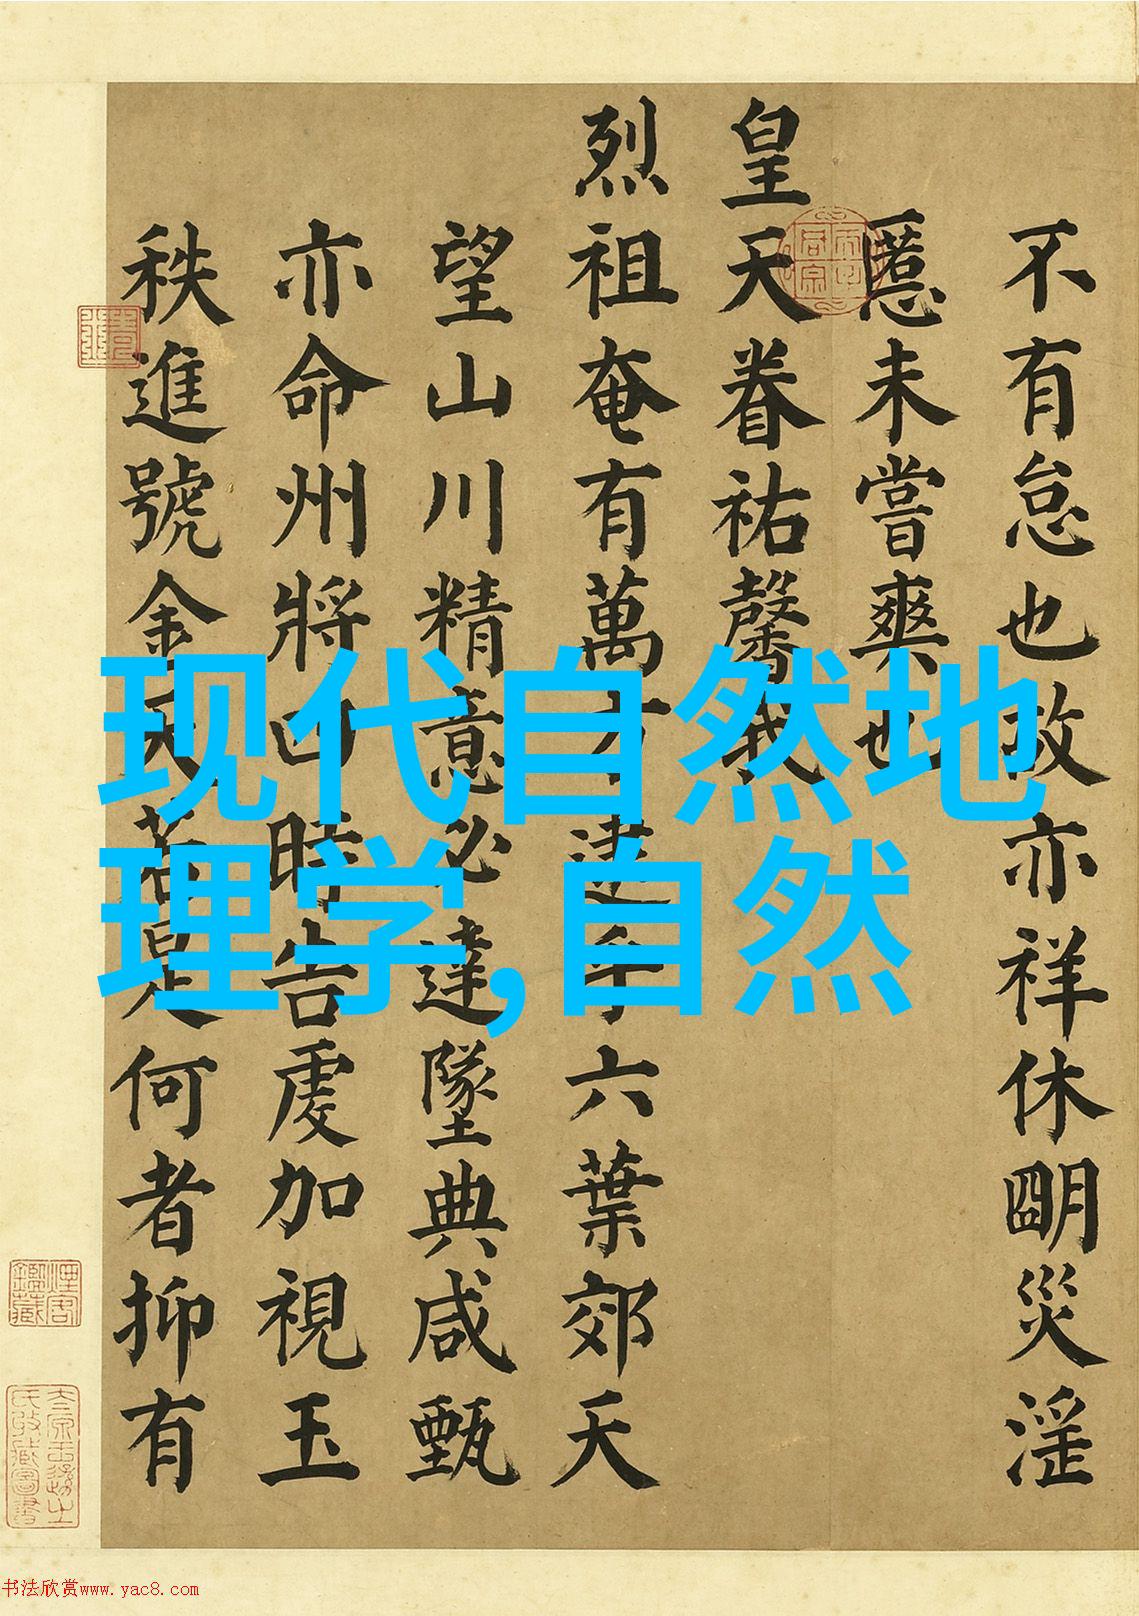 不有怠也故亦祥休朙災淫
慝未嘗爽也
皇天眷祐馨我
烈祖奄有萬方逮乎六葉郊天
望山川精意必達墜典咸甄
亦命州將四時告虔加視玉
秩進號金天若是何者抑有
现代自然地
理学,自然
书法欣赏www.yac8.com